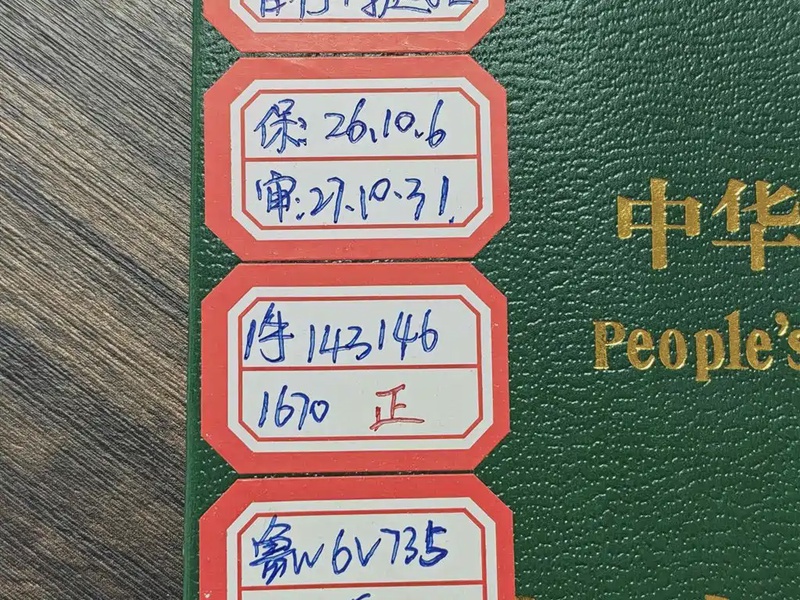 保: 26.10.6
审: 27.10.31.
件 143146
1670 正
鲁W6V735
中华
People's